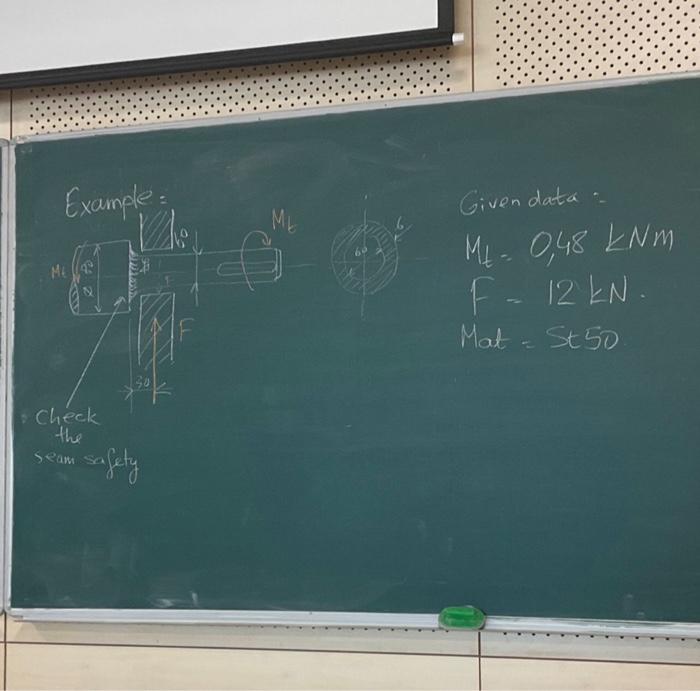 Example:
Mt
Mt
F
30
Check
the
seam safety
60
6
Given data:
Mt = 0,48 kNm
F = 12 kN.
Mat = St50